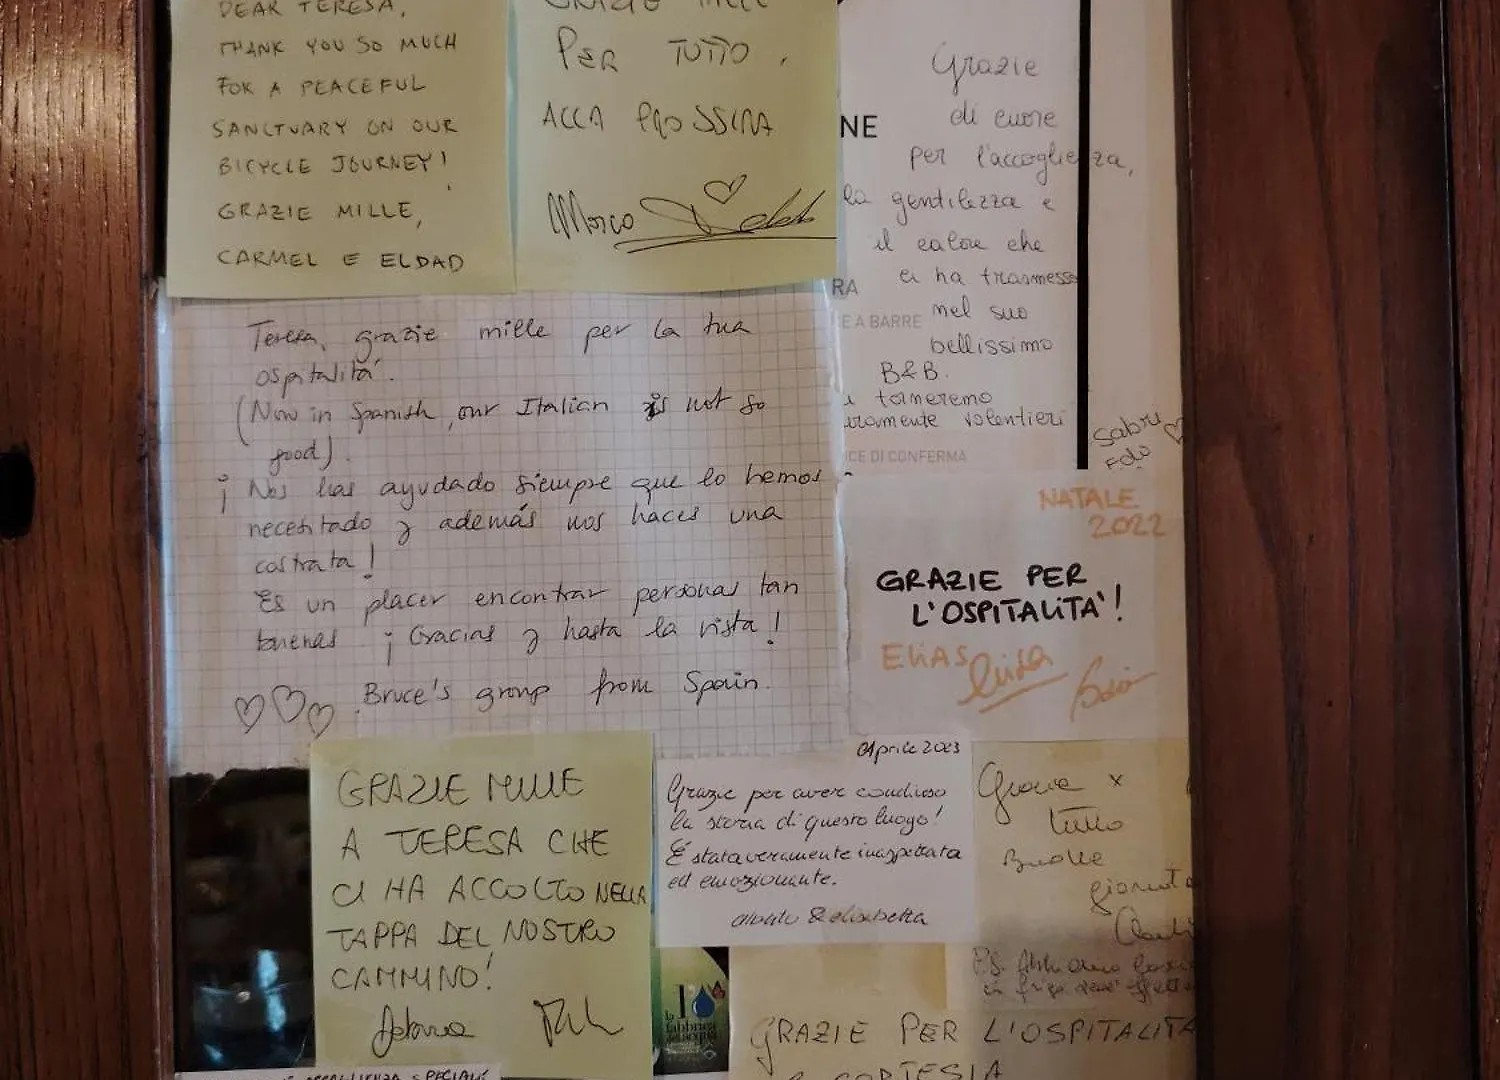 DEAR TERESA,
THANK YOU SO MUCH
FOR A PEACEFUL
SANCTUARY ON OUR
BICYCLE JOURNEY!
GRAZIE MILLE,
CARMEL E ELDAD
GRAZIE MILLE
PER TUTTO,
ALLA PROSSIMA
Marco
Grazie
di cuore
per l'accoglienza,
la gentilezza e
il calore che
ci ha trasmesso
nel suo
bellissimo
B&B.
torneremo
volentieri
Sabri
NE
RA
E A BARRE
ICE DI CONFERMA
Teresa, grazie mille per la tua
ospitalitá.
(Now in Spanish, our Italian is not so
good).
¡Nos has ayudado siempre que lo hemos
necesitado y además nos haces una
castrata!
Es un placer encontrar personas tan
buenas. ¡Gracias y hasta la vista!
Bruce's group from Spain.
NATALE
2022
GRAZIE PER
L'OSPITALITA'!
ELIAS
Luisa
GRAZIE MILLE
A TERESA CHE
CI HA ACCOLTO NELLA
TAPPA DEL NOSTRO
CAMMINO!
Aprile 2023
Grazie per aver condiviso
la storia di questo luogo!
È stata veramente inaspettata
ed emozionante.
Alberto & Elisabetta
Grazie x
tutto
Buone
giornate
P.S.
in frigo
la
fabbrica
dell'acqua
GRAZIE PER L'OSPITALITA
CORTESIA
ACCOGLIENZA SPECIALE